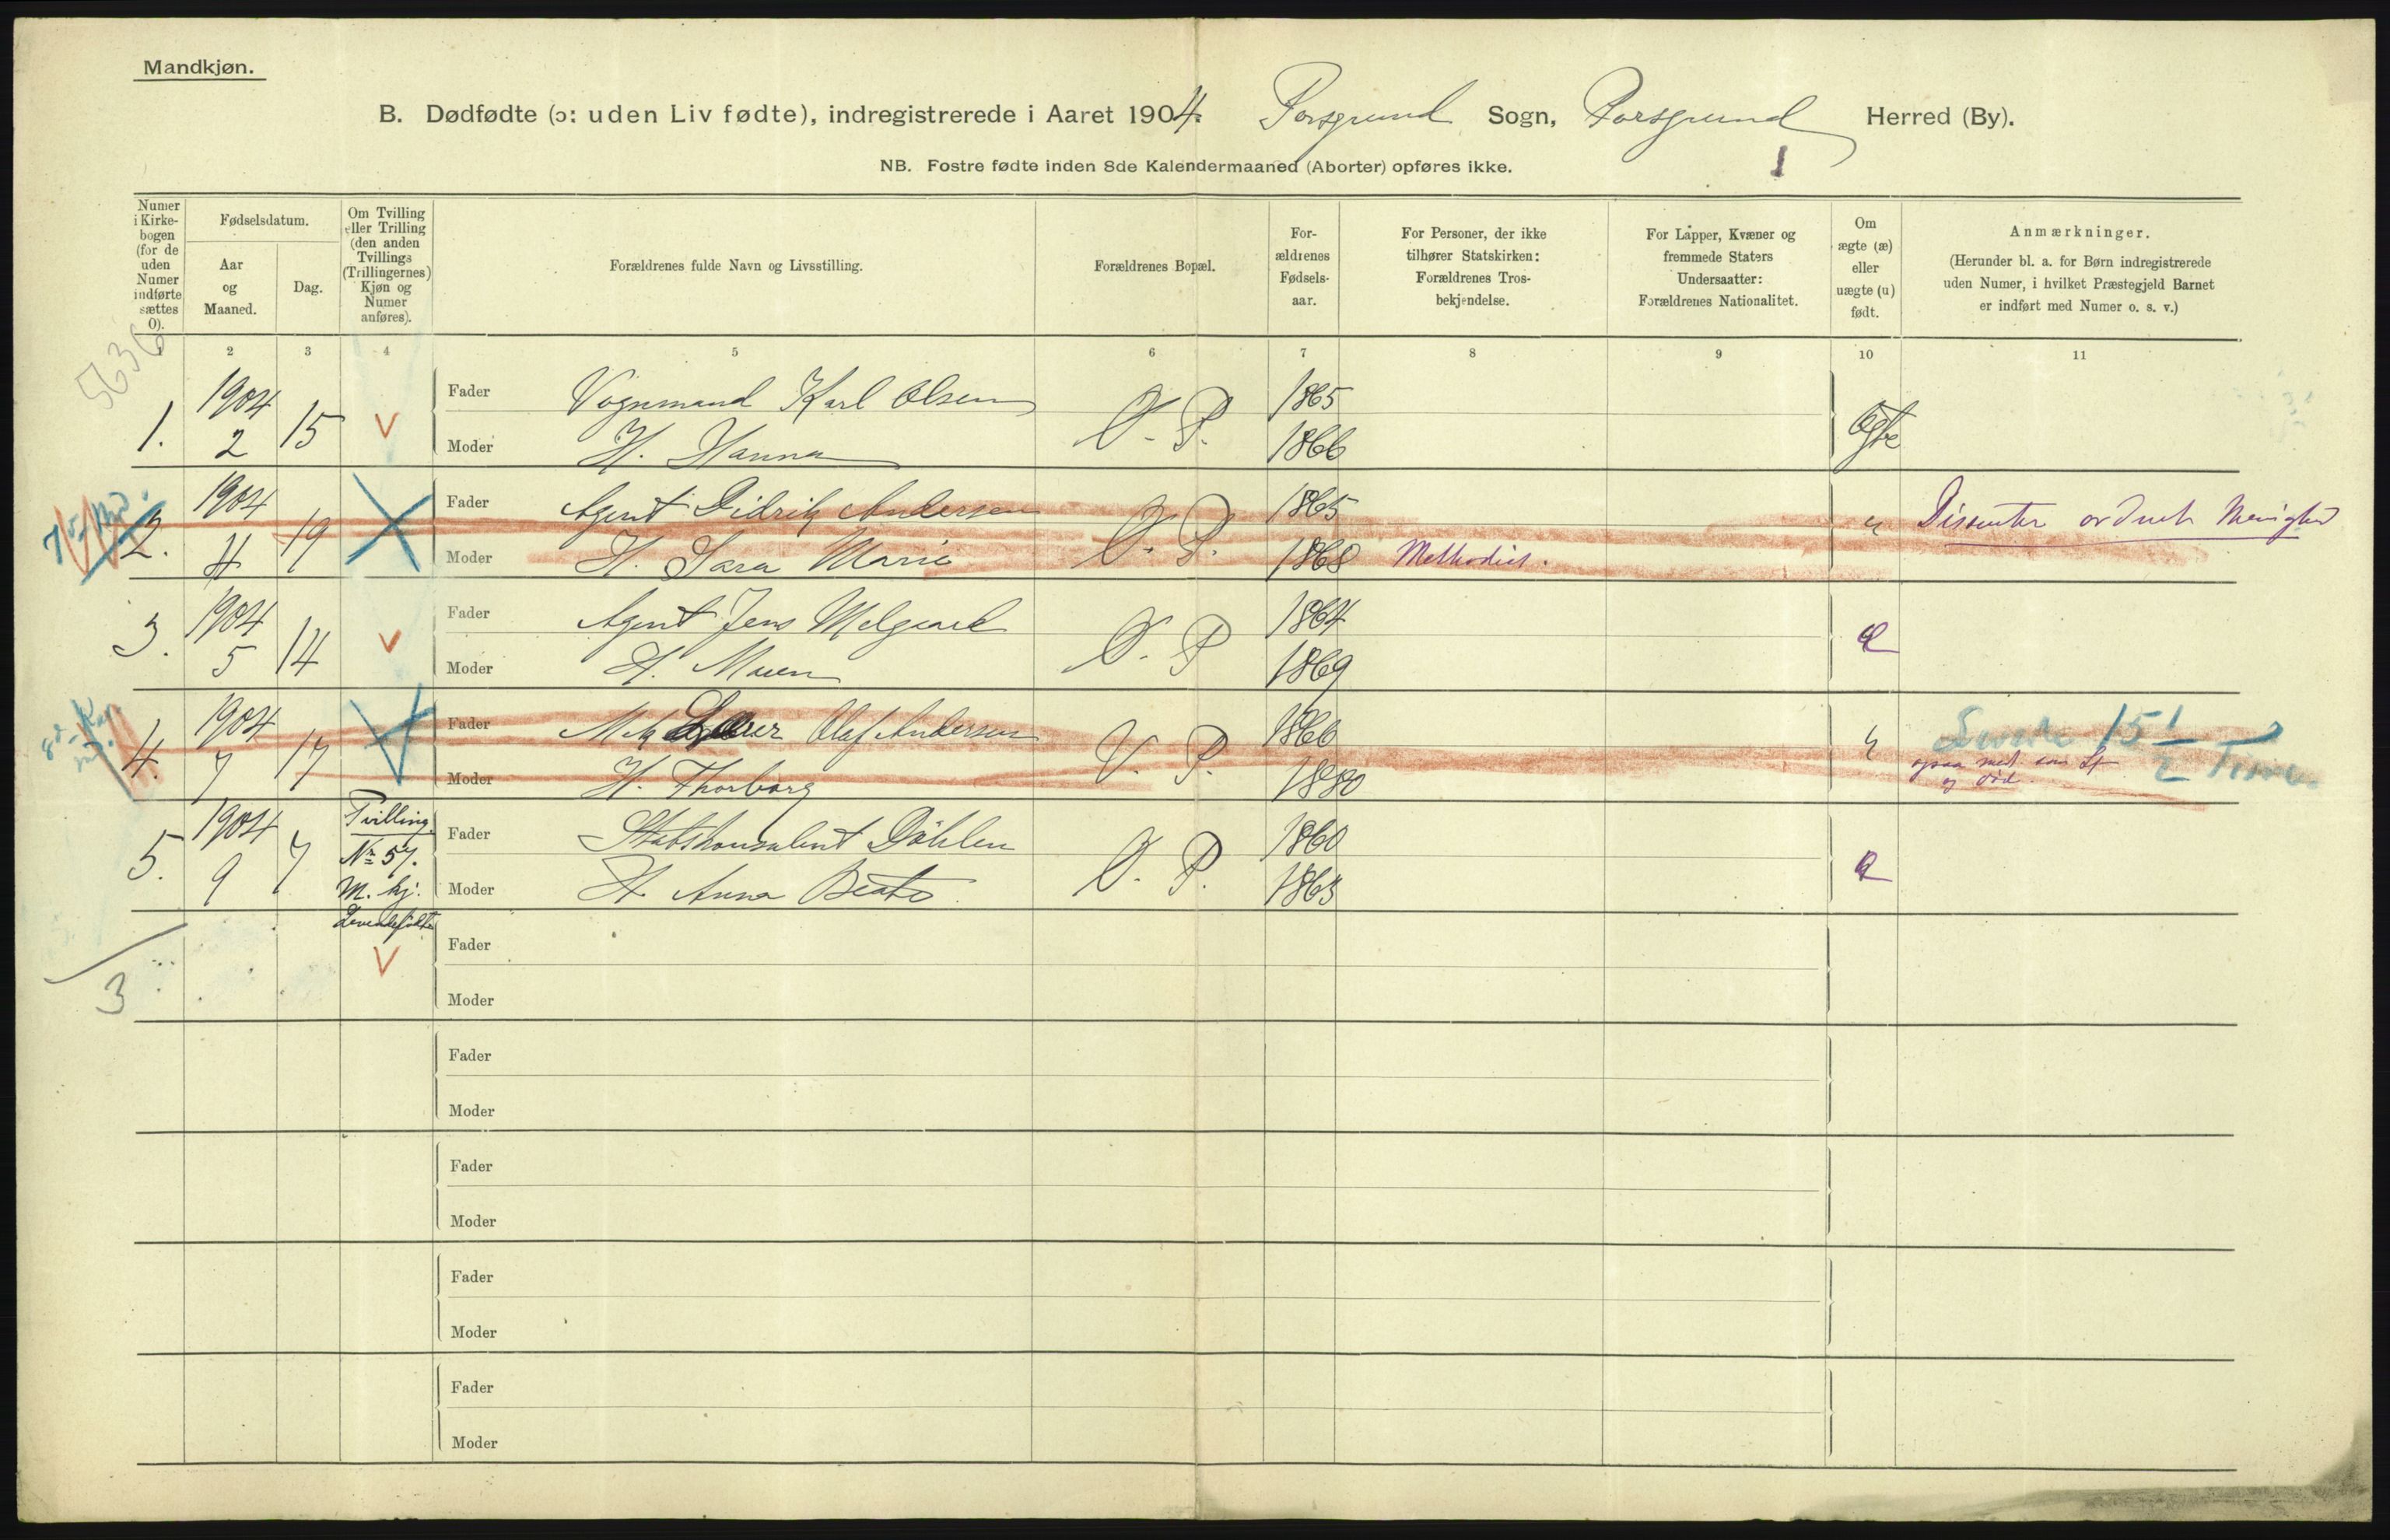 Mandkjøn.
B. Dødfødte (ɔ: uden Liv fødte), indregistrerede i Aaret 1904. Porsgrund Sogn, Porsgrund Herred (By).
NB. Fostre fødte inden 8de Kalendermaaned (Aborter) opføres ikke.
1
Numer
i Kirke-
bogen
(for de
uden
Numer
indførte
sættes
0).
Fødselsdatum.
Aar
og
Maaned.
Dag.
Om Tvilling
eller Trilling
(den anden
Tvillings
(Trillingernes)
Kjøn og
Numer
anføres).
Forældrenes fulde Navn og Livsstilling.
Forældrenes Bopæl.
For-
ældrenes
Fødsels-
aar.
For Personer, der ikke
tilhører Statskirken:
Forældrenes Tros-
bekjendelse.
For Lapper, Kvæner og
fremmede Staters
Undersaatter:
Forældrenes Nationalitet.
Om
ægte (æ)
eller
uægte (u)
født.
Anmærkninger.
(Herunder bl. a. for Børn indregistrerede
uden Numer, i hvilket Præstegjeld Barnet
er indført med Numer o. s. v.)
1 2 3 4 5 6 7 8 9 10 11
5636
1. 1904 2 15 V
Fader Vognmand Karl Olsen V. P. 1865 Ægte
Moder H. Hanna 1866
2. 1904 4 19
Fader Agent Didrik Andersen V. P. 1865 Dissenter ordnet Menighed
Moder H. Sara Marie 1868 Methodist.
3. 1904 5 14 V
Fader Agent Jens Melgaard V. P 1864 Æ
Moder H. Maren 1869
4. 1904 7 17
Fader Olaf Andersen V. P. 1866 15 1/2
Moder H. Thorborg 1880 og død.
5. 1904 9 7 Tvilling
Nr 57.
M. kj.
Levendefødte
V
Fader Døhlen V. P. 1860 Æ
Moder H. Anna Beate 1863
3
Fader
Moder
Fader
Moder
Fader
Moder
Fader
Moder
Fader
Moder